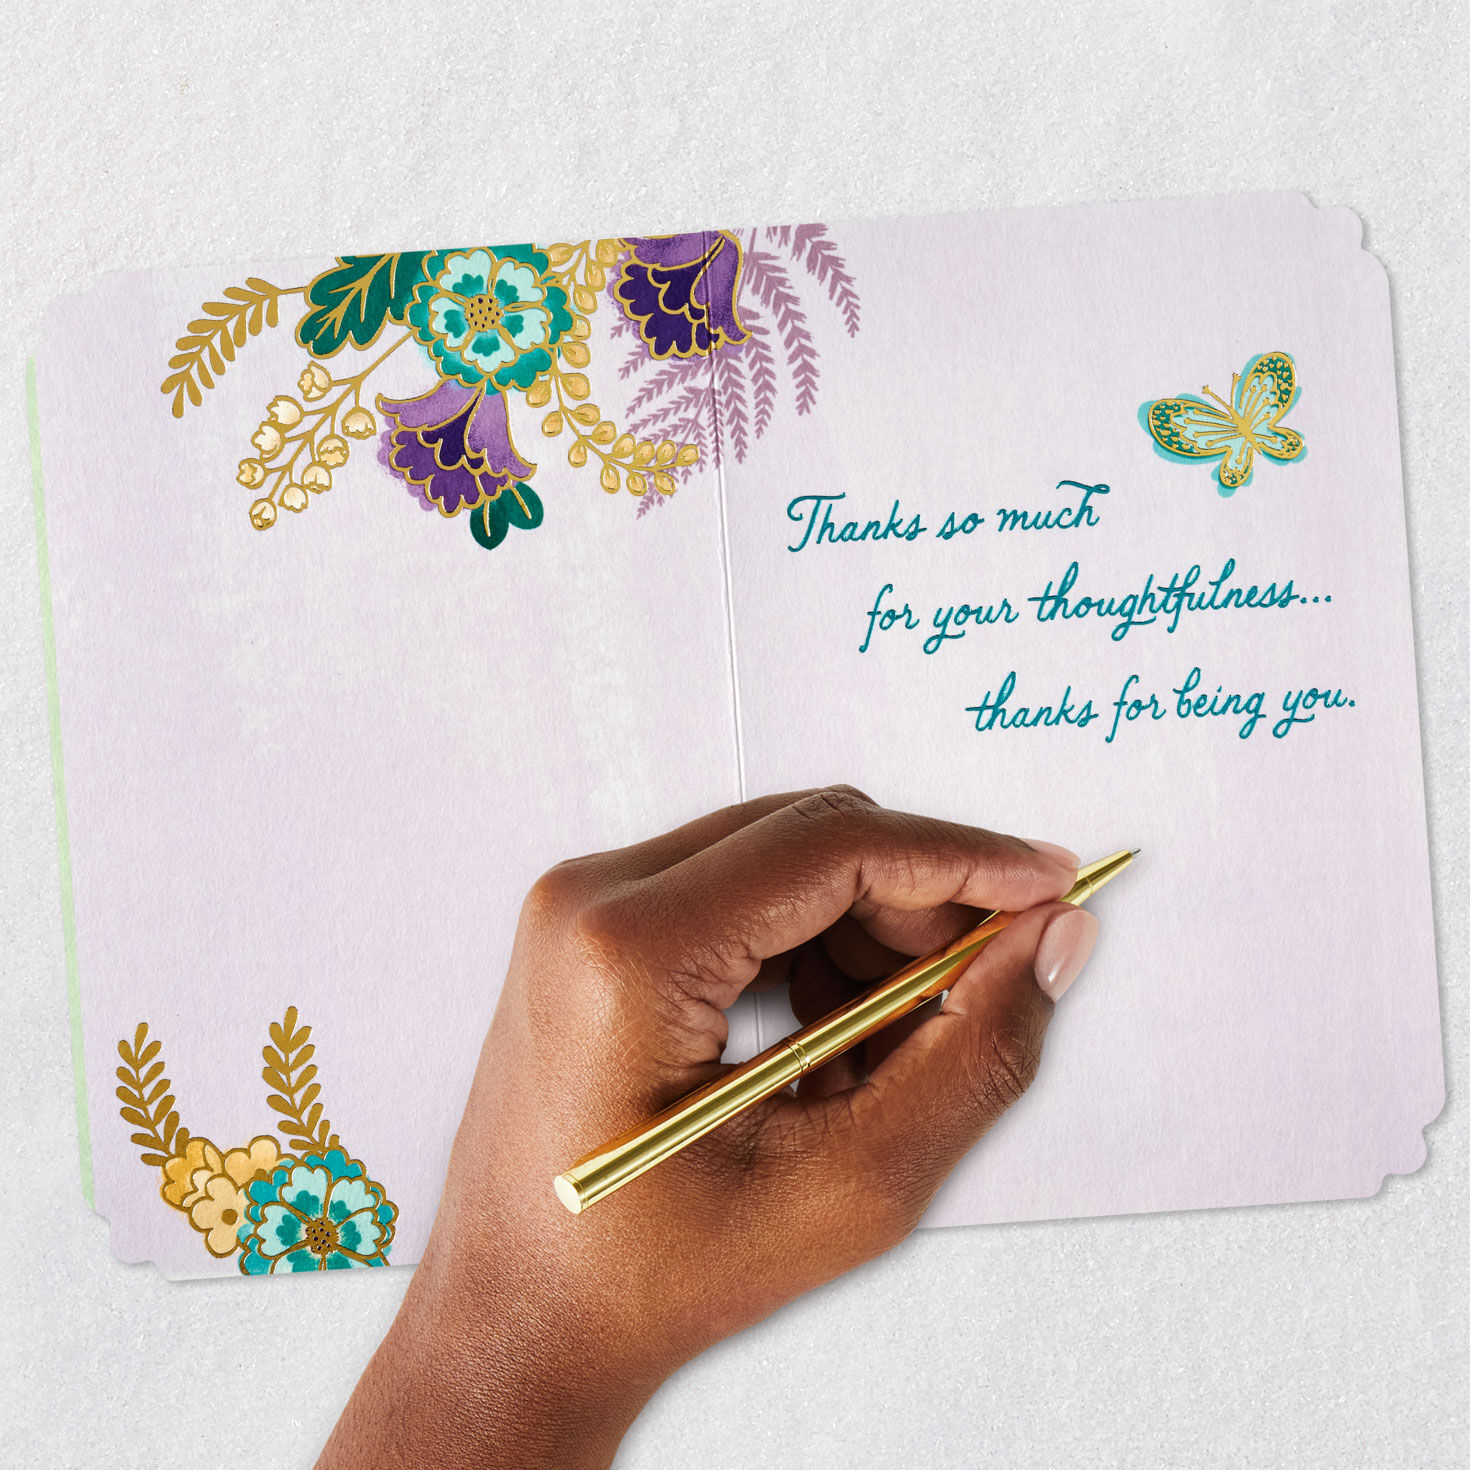 Thanks so much
for your thoughtfulness...
thanks for being you.